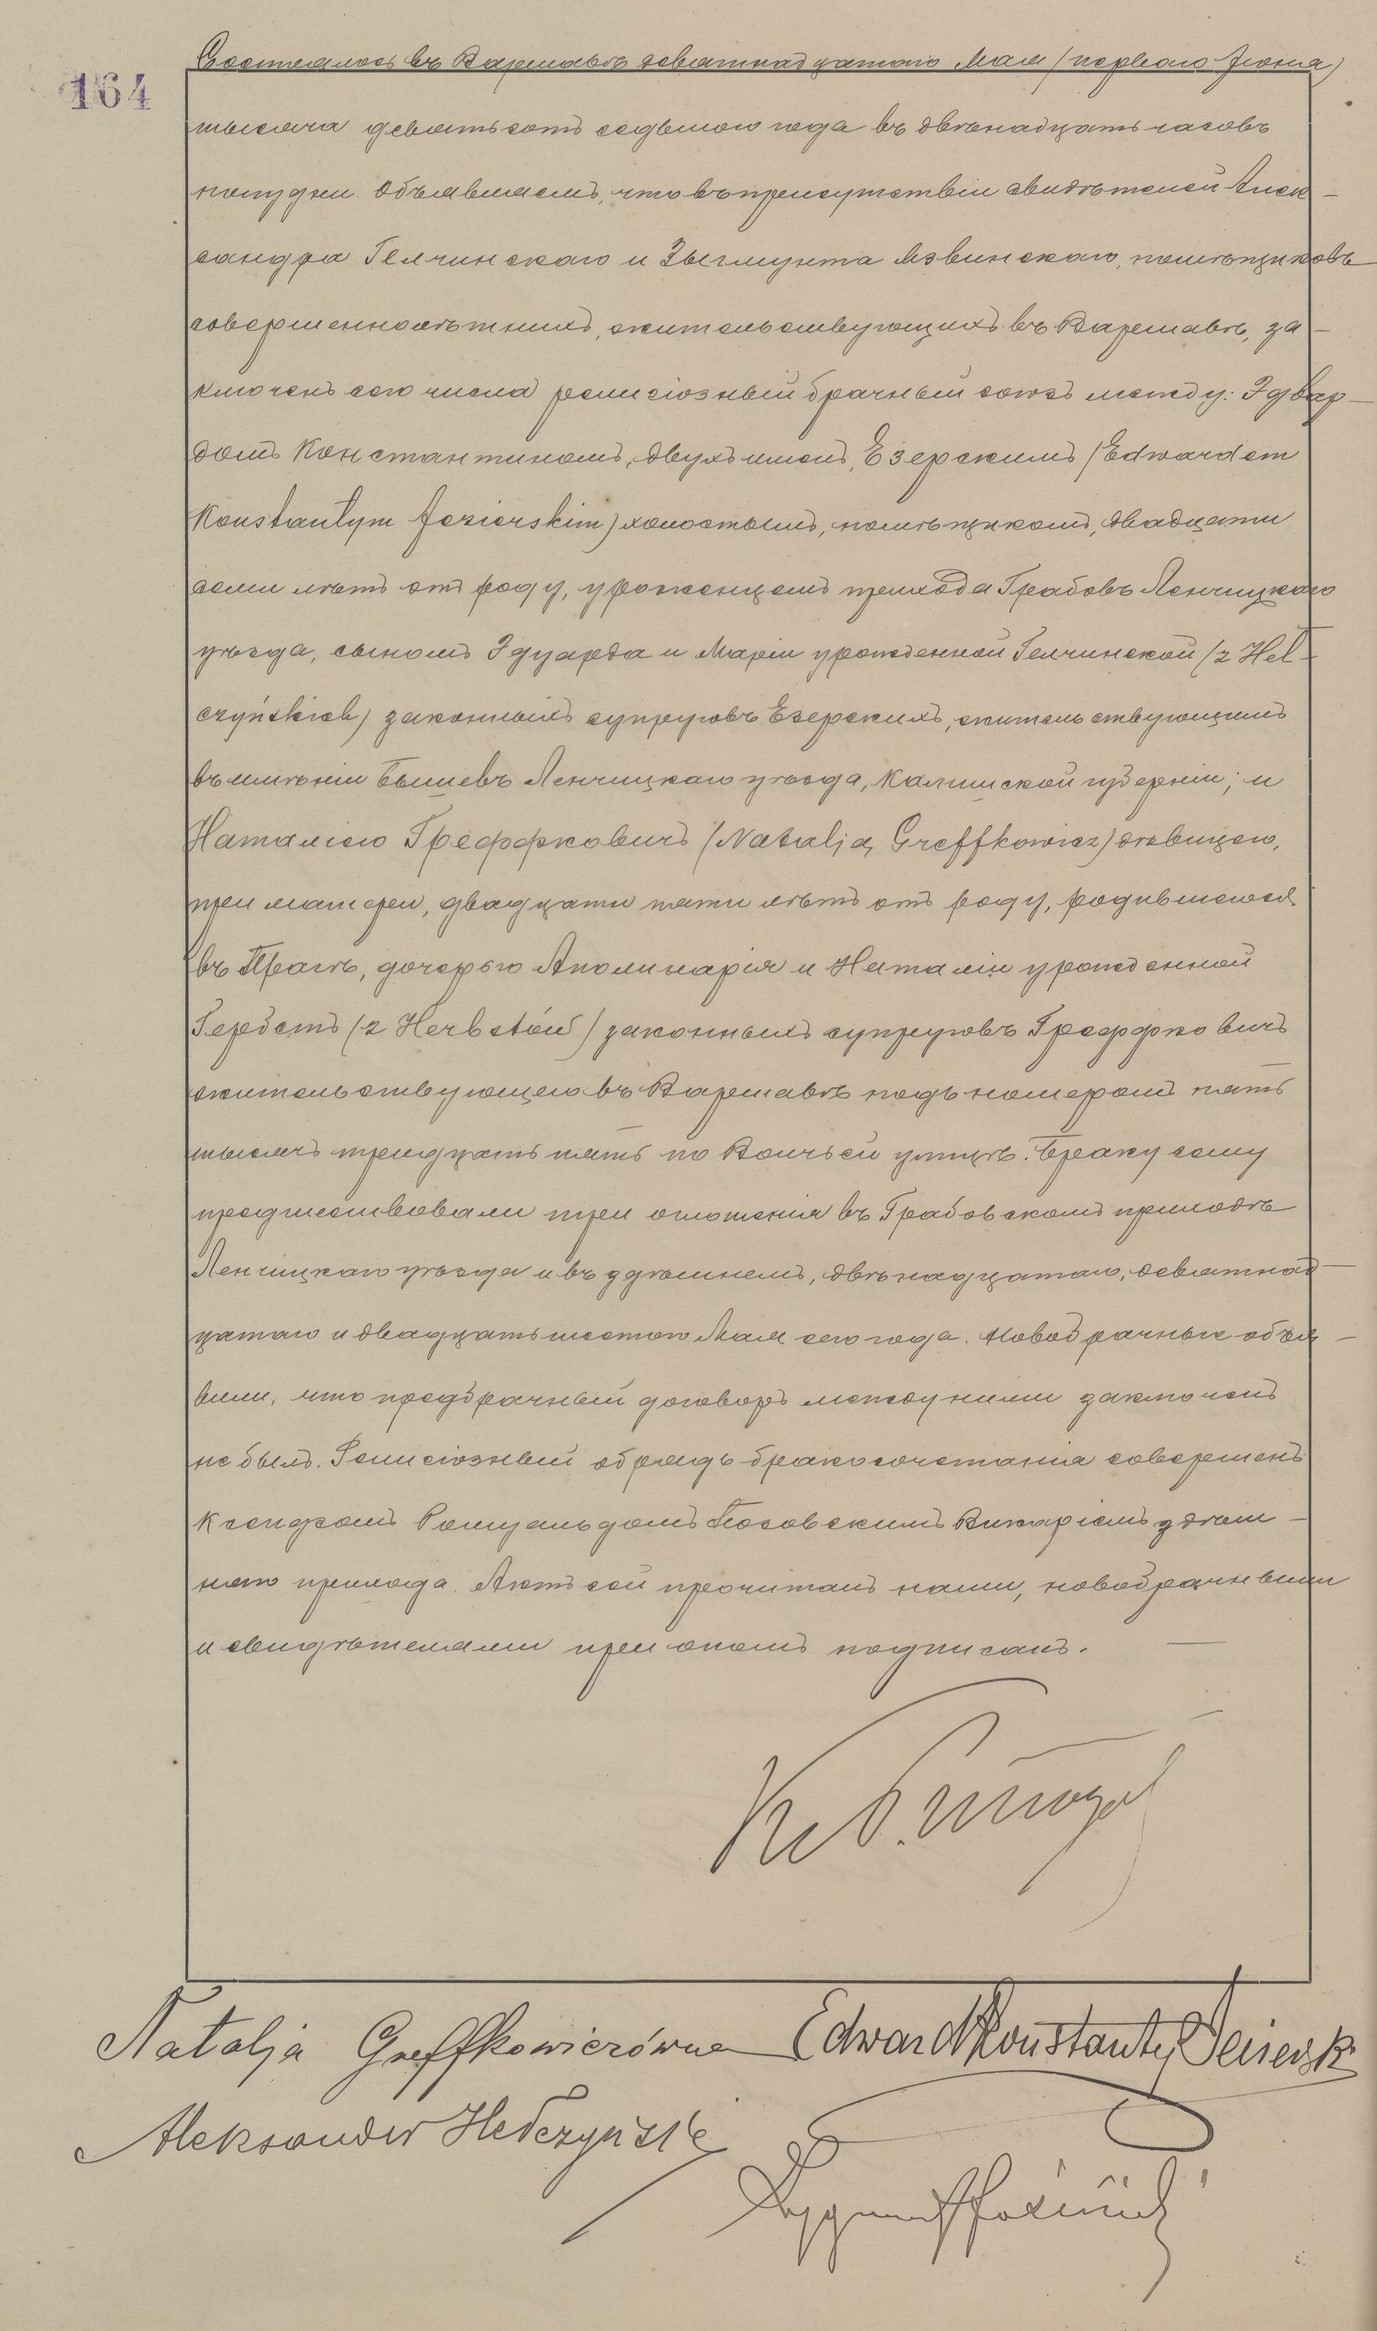 164
Состоялось въ Варшавѣ девятнадцатаго Мая (перваго Іюня)
тысяча девятьсотъ седьмого года въ двѣнадцать часовъ
полудни. Объявляемъ, что въ присутствіи свидѣтелей Алек-
сандра Гелчинскаго и Зыгмунта помѣщиковъ
совершеннолѣтнихъ, жительствующихъ въ Варшавѣ, за-
ключенъ сего числа религіозный брачный союзъ между: Эдвар-
домъ Константиномъ, двухъ именъ, Езерскимъ (Edwardem
Konstantym Jezierskim) холостымъ, помѣщикомъ, двадцати
семи лѣтъ отъ роду, уроженцемъ прихода Грабовъ Ленчицкаго
уѣзда, сыномъ Эдуарда и Маріи урожденной Гелчинской (z Heł-
czyńskich) законныхъ супруговъ Езерскихъ, жительствующимъ
въ имѣніи Бышевъ Ленчицкаго уѣзда, Калишской губерніи; и
Наталіею Греффковичъ (Natalją Greffkowicz) дѣвицею,
при матери, двадцати пяти лѣтъ отъ роду, родившеюся
въ Прагѣ, дочерью Аполинарія и Наталіи урожденной
Гербстъ (z Herbstów) законныхъ супруговъ Греффковичъ
жительствующею въ Варшавѣ подъ номеромъ пять
тысячъ тридцать пять по Волчьей улицѣ. Браку сему
предшествовали три оглашенія въ Грабовскомъ приходѣ
Ленчицкаго уѣзда и въ здѣшнемъ, двѣнадцатаго, девятнад-
цатаго и двадцать шестого Мая сего года. Новобрачные объя-
вили, что предбрачный договоръ между ними заключенъ
не былъ. Религіозный обрядъ бракосочетанія совершенъ
Ксендзомъ Ромуальдомъ Викаріемъ здѣш-
няго прихода. Актъ сей прочитанъ нами, новобрачными
и свидѣтелями при ономъ подписанъ.
Natalja Greffkowiczówna Edward Konstanty Jeziersk
Aleksander Hełczyński
Zygmunt